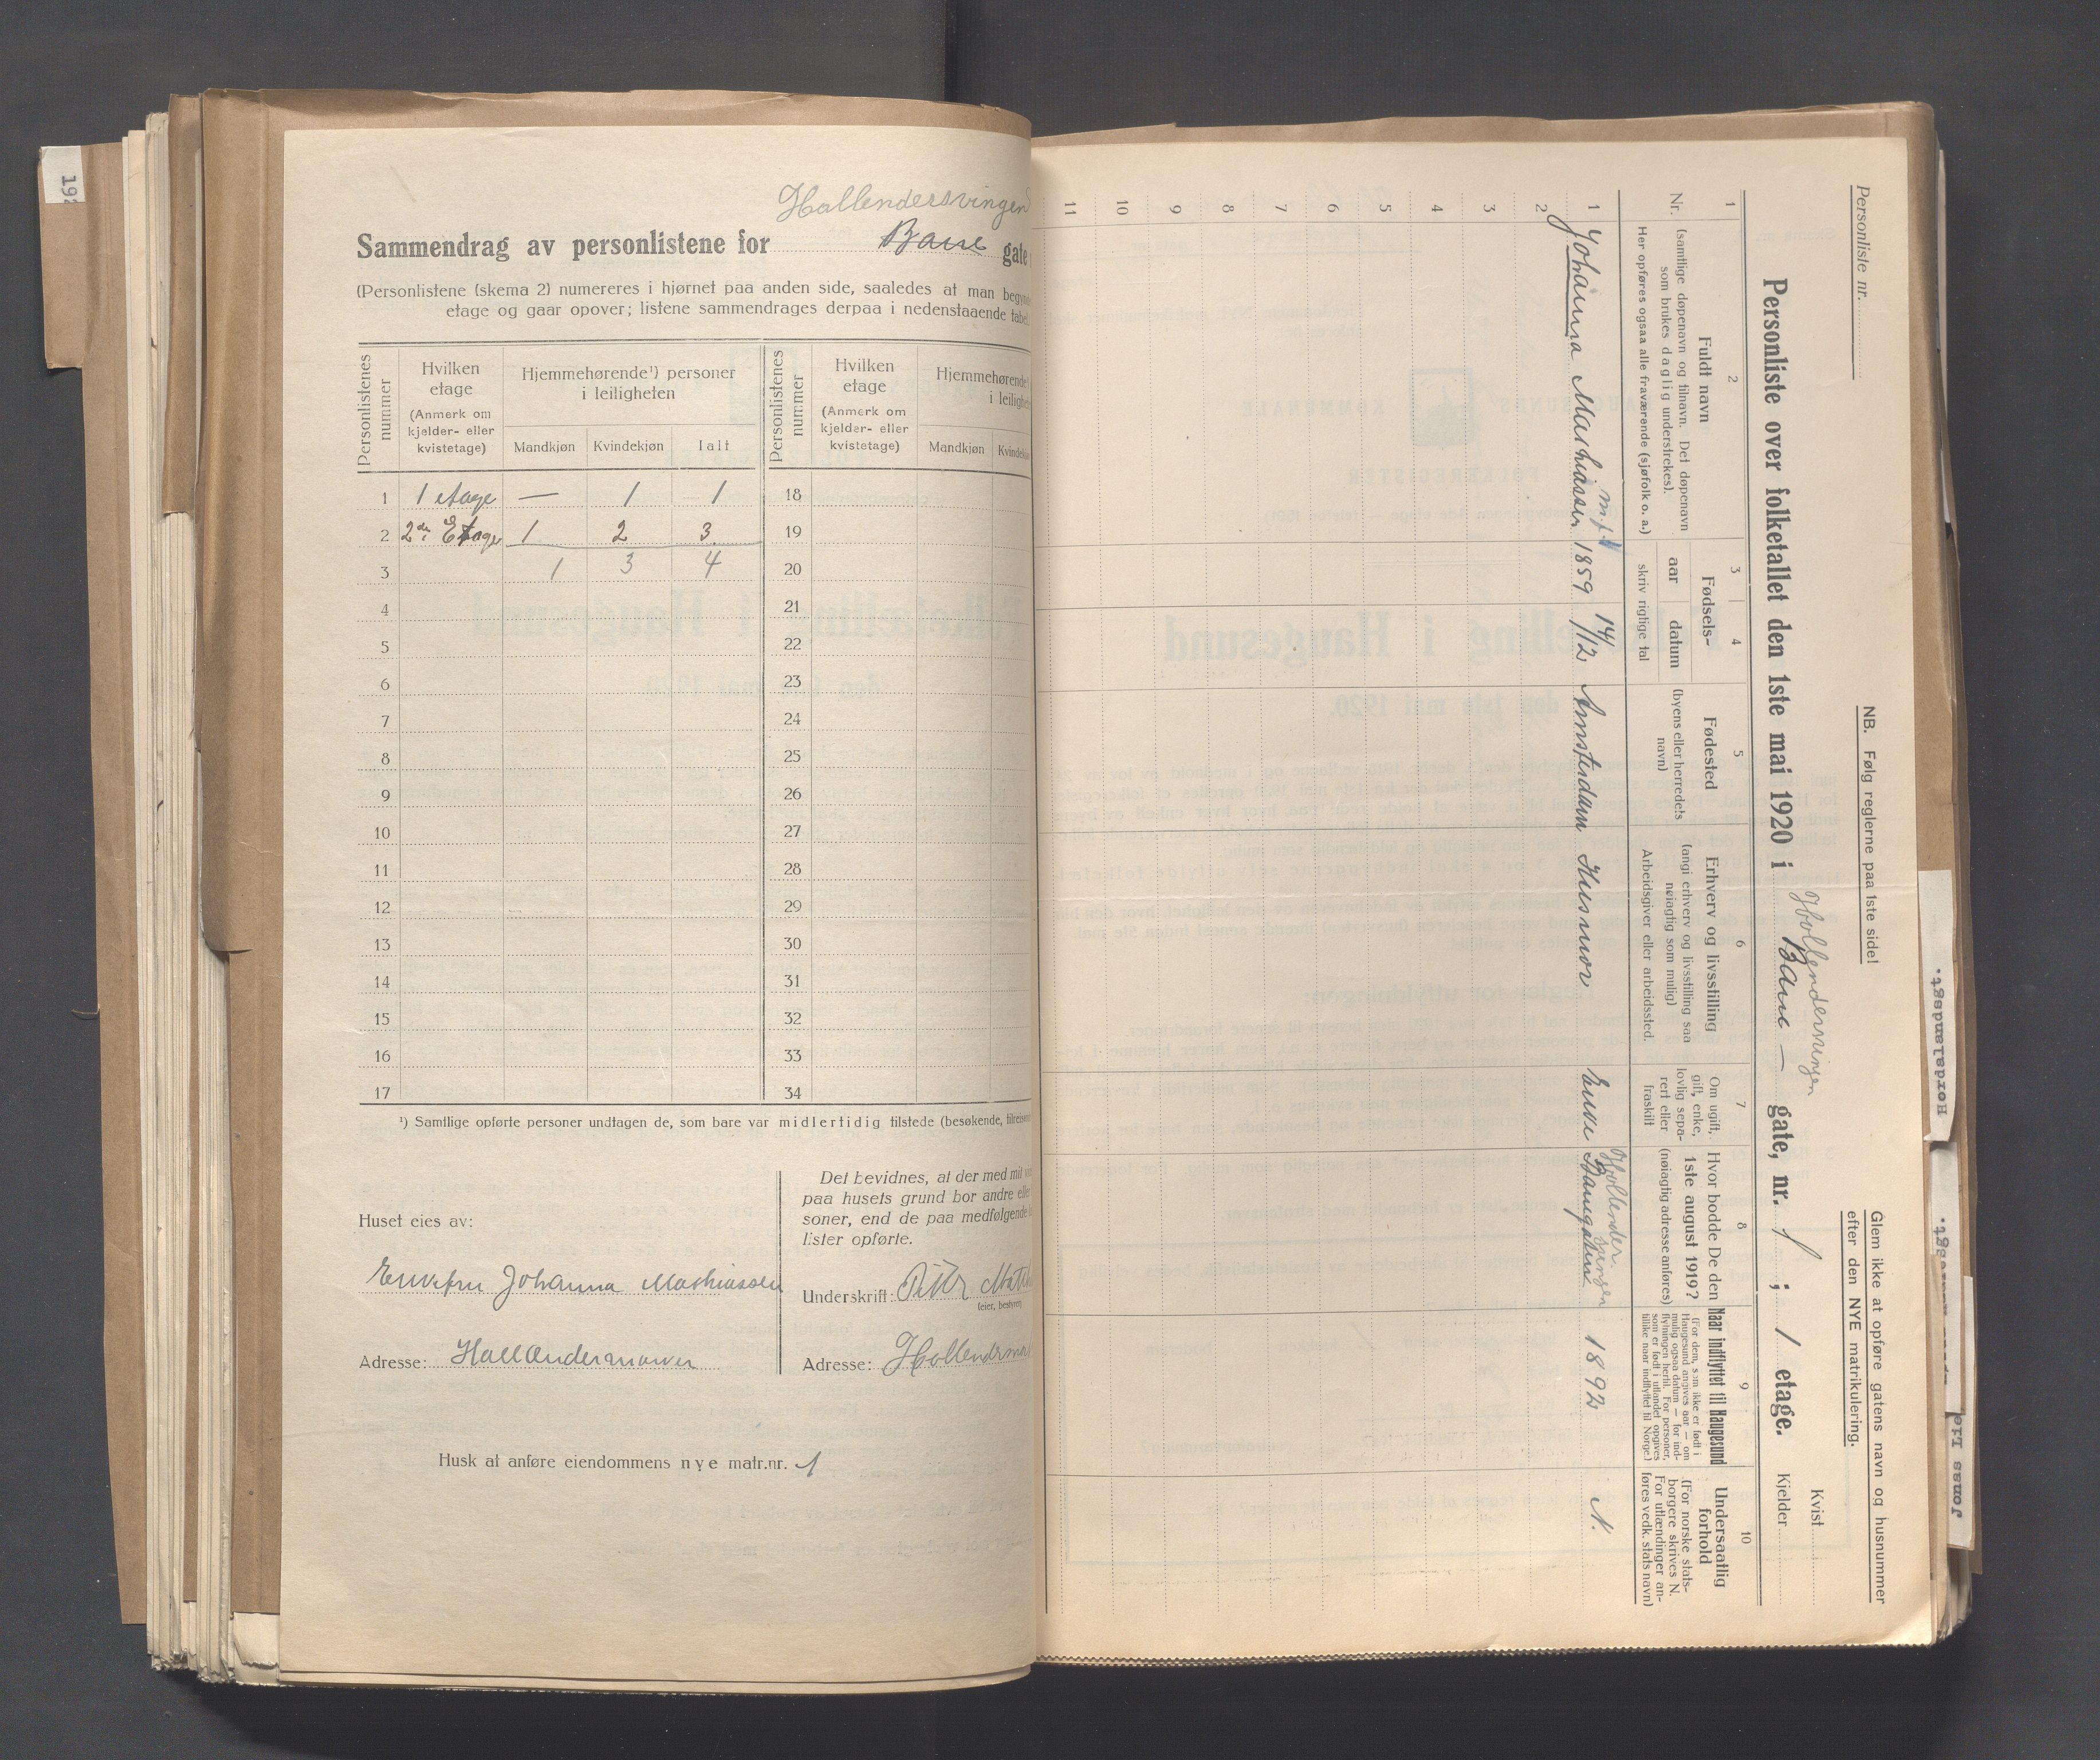 192
Hollendersvingen
Sammendrag av personlistene for Bane gate
(Personlistene (skema 2) numereres i hjørnet paa anden side, saaledes at man
etage og gaar opover; listene sammendrages derpaa i nedenstaaende tabel.
Personlistenes nummer
Hvilken etage (Anmerk om kjelder- eller kvistetage)
Hjemmehørende¹) personer i leiligheten
Mandkjøn Kvindekjøn Ialt
Personlistenes nummer
Hvilken etage (Anmerk om kjelder- eller kvistetage)
Hjemmehørende
Mandkjøn
1 1 etage — 1 1 18
2 2den Etage 1 2 3 19
3 1 3 4 20
4 21
5 22
6 23
7 24
8 25
9 26
10 27
11 28
12 29
13 30
14 31
15 32
16 33
17 34
¹) Samtlige opførte personer undtagen de, som bare var midlertidig tilstede (besøkende,
Huset eies av:
Enkefru Johanna Mathiassen
Adresse: Hollender
Det bevidnes, at der med mit
paa husets grund bor andre
soner, end de paa medfølgende
lister opførte.
Underskrift: Peter
(eier, bestyrer)
Adresse:
Husk at anføre eiendommens nye matr.nr. 1
Personliste nr.
NB. Følg reglerne paa 1ste side!
Glem ikke at opføre gatens navn og husnummer
efter den NYE matrikulering.
Hollendersvingen
Personliste over folketallet den 1ste mai 1920 i Bane — gate, nr. 1 ; 1 etage.
Kvist
Kjelder
1 2 3 4 5 6 7 8 9 10
Nr.
Fuldt navn
(samtlige døpenavn og tilnavn. Det døpenavn
som brukes daglig understrekes).
Her opføres ogsaa alle fraværende (sjøfolk o. a.)
Fødsels-
aar datum
skriv rigtige tal
Fødested
(byens eller herredets
navn)
Erhverv og livsstilling
(angi erhverv og livsstilling saa
nøiagtig som mulig)
Arbeidsgiver eller arbeidssted.
Om ugift,
gift, enke,
lovlig sepa-
rert eller
fraskilt
Hvor bodde De den
1ste august 1919?
(nøiagtig adresse anføres)
Naar indflyttet til Haugesund
(For dem, som ikke er født i
Haugesund angives aar — om
mulig ogsaa datum — for ind-
flytningen hertil. For personer,
som er født i utlandet opgives
tillike naar indflyttet til Norge.)
Undersaatlig
forhold
(For norske stats-
borgere skrives N.
For utlændinger an-
føres vedk. stats navn)
Hollender
svingen
1 Johanna Mathiassen 1859 14/12 Amsterdam Husmor Enke Banegaten 1892 N.
2
3
4
5
6
7
8
9
10
11
Hordalandsgt.
Jonas Lie